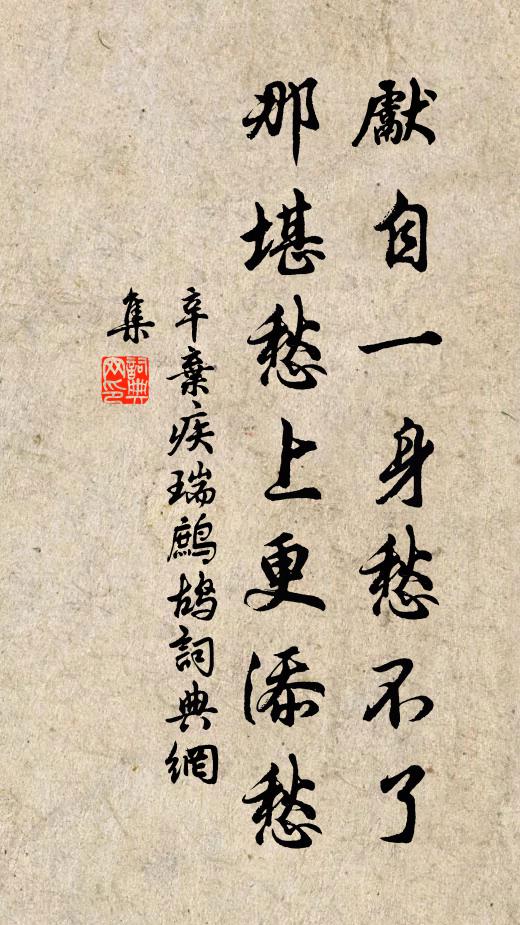 獻自一身愁不了
那堪愁上更添愁
辛棄疾瑞鷓鴣詞典網
集
詞典
网印